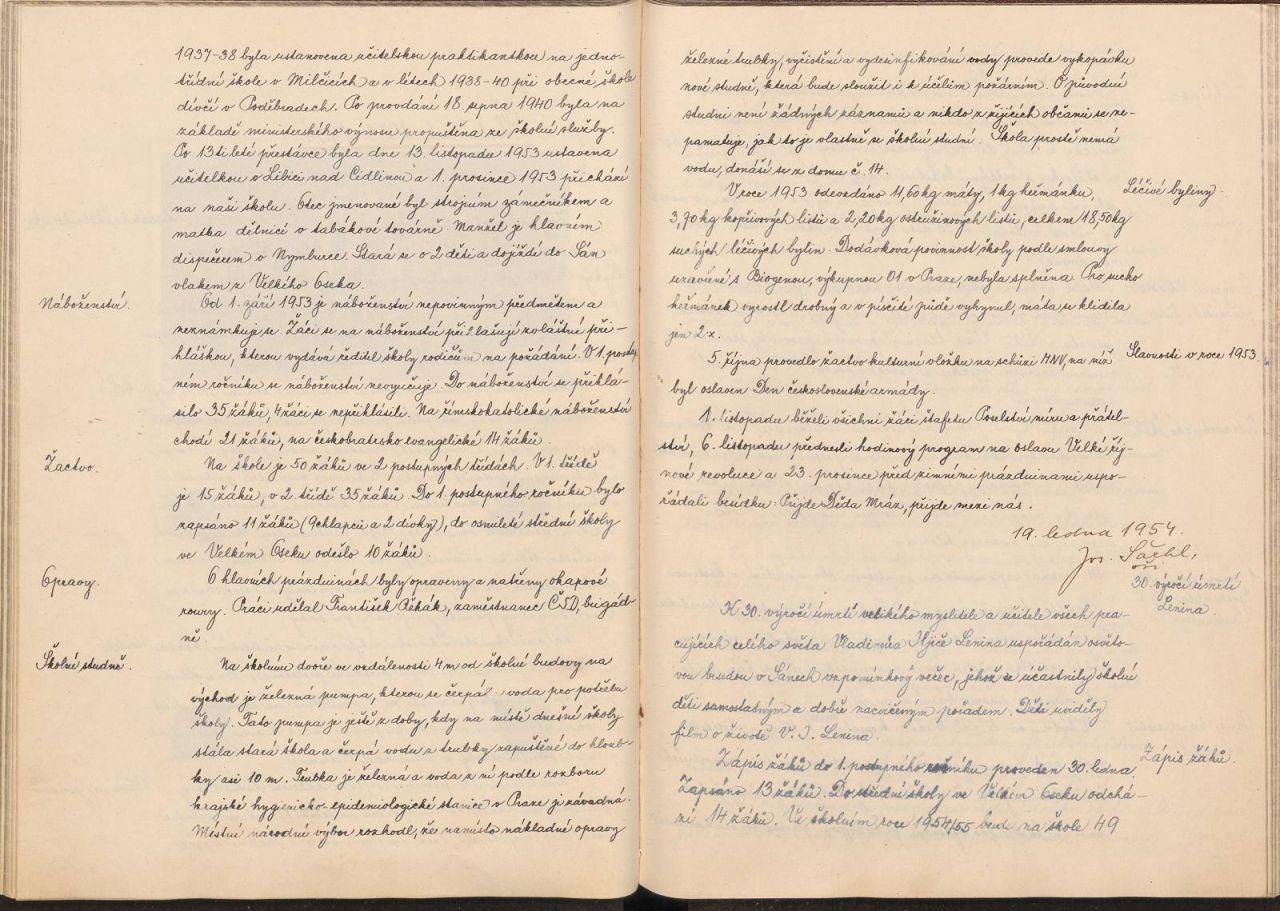 1937-38 byla ustanovena učitelskou praktikantkou na jedno-
třídní škole v Milčicích a v létech 1938-40 při obecné škole
dívčí v Poděbradech. Po provdání 18. srpna 1940 byla na
základě ministerského výnosu propuštěna ze školní služby.
Po 13tileté přestávce byla dne 13. listopadu 1953 ustavena
učitelkou v Libici nad Cidlinou a 1. prosince 1953 přichází
na naši školu. Otec jmenované byl strojním zámečníkem a
matka dělnicí v tabákové továrně. Manžel je hlavním
dispečerem v Nymburce. Stará se o 2 děti a dojíždí do Sán
vlakem z Velkého Oseka.
Náboženství.
Od 1. září 1953 je náboženství nepovinným předmětem a
neznámkuje se. Žáci se na náboženství přihlašují zvláštně při-
hláškou, kterou vydává ředitel školy rodičům na požádání. V 1. postup
ném ročníku se náboženství nevyučuje. Do náboženství se přihlá-
silo 35 žáků, 4 žáci se nepřihlásili. Na římskokatolické náboženství
chodí 21 žáků, na českobratrsko evangelické 14 žáků.
Žactvo.
Na škole je 50 žáků ve 2 postupných třídách. V 1. třídě
je 15 žáků, v 2 třídě 35 žáků. Do 1. postupného ročníku bylo
zapsáno 11 žáků (9 chlapců a 2 dívky), do osmileté střední školy
ve Velkém Oseku odešlo 10 žáků.
Opravy.
O hlavních prázdninách byly opraveny a natřeny okapové
roury. Práci udělal František Pěkák, zaměstnanec ČSD, brigád-
ně.
Školní studně.
Na školním dvoře ve vzdálenosti 4 m od školní budovy na
východ je železná pumpa, kterou se čerpá voda pro potřebu
školy. Tato pumpa je ještě z doby, kdy na místě dnešní školy
stála stará škola a čerpá vodu z trubky zapuštěné do hloub-
ky asi 10 m. Trubka je železná a voda z ní podle rozboru
krajské hygienicko-epidemiologické stanice v Praze je závadná.
Místní národní výbor rozhodl, že namísto nákladné opravy
železné trubky, vyčistění a vydesinfikování vody provede vykopávku
nové studně, která bude sloužit i k účelům požárním. O původní
studni není žádných záznamů a nikdo z žijících občanů se ne-
pamatuje, jak to je vlastně se školní studní. Škola prostě nemá
vodu, donáší se z domu č. 14.
V roce 1953 odevzdáno 11,60 kg máty, 1 kg heřmánku,
Léčivé byliny.
3,70 kg kopřivových listů a 2,20 kg ostružinových listů, celkem 18,50 kg
suchých léčivých bylin. Dodávková povinnost školy podle smlouvy
uzavřené s Biogenou, výkupnou 01 v Praze, nebyla splněna. Pro sucho
heřmánek vyrostl drobný a v písčité půdě vyhynul, máta se klidila
jen 2x.
5. října provedlo žactvo kulturní vložku na schůzi MNV, na níž
Slavnosti v roce 1953.
byl oslaven Den československé armády.
1. listopadu běželi všichni žáci štafetu Poselství míru a přátel-
ství, 6. listopadu přednesli hodinový program na oslavu Velké říj-
nové revoluce a 23. prosince před zimními prázdninami uspo-
řádali besídku: Přijde Děda Mráz, přijde mezi nás.
19. ledna 1954.
Jos.
30. výročí úmrtí
Lenina.
K 30. výročí úmrtí velikého myslitele a učitele všech pra-
cujících celého světa Vladimíra Iljiče Lenina uspořádán osvěto-
vou besedou v Sánech vzpomínkový večer, jehož se účastnily školní
děti samostatným a dobře nacvičeným pořadem. Děti uviděly
film o životě V. I. Lenina.
Zápis žáků do 1. postupného ročníku proveden 30. ledna.
Zápis žáků.
Zapsáno 13 žáků. Do střední školy ve Velkém Oseku odchá-
zí 14 žáků. Ve školním roce 1954/55 bude na škole 49